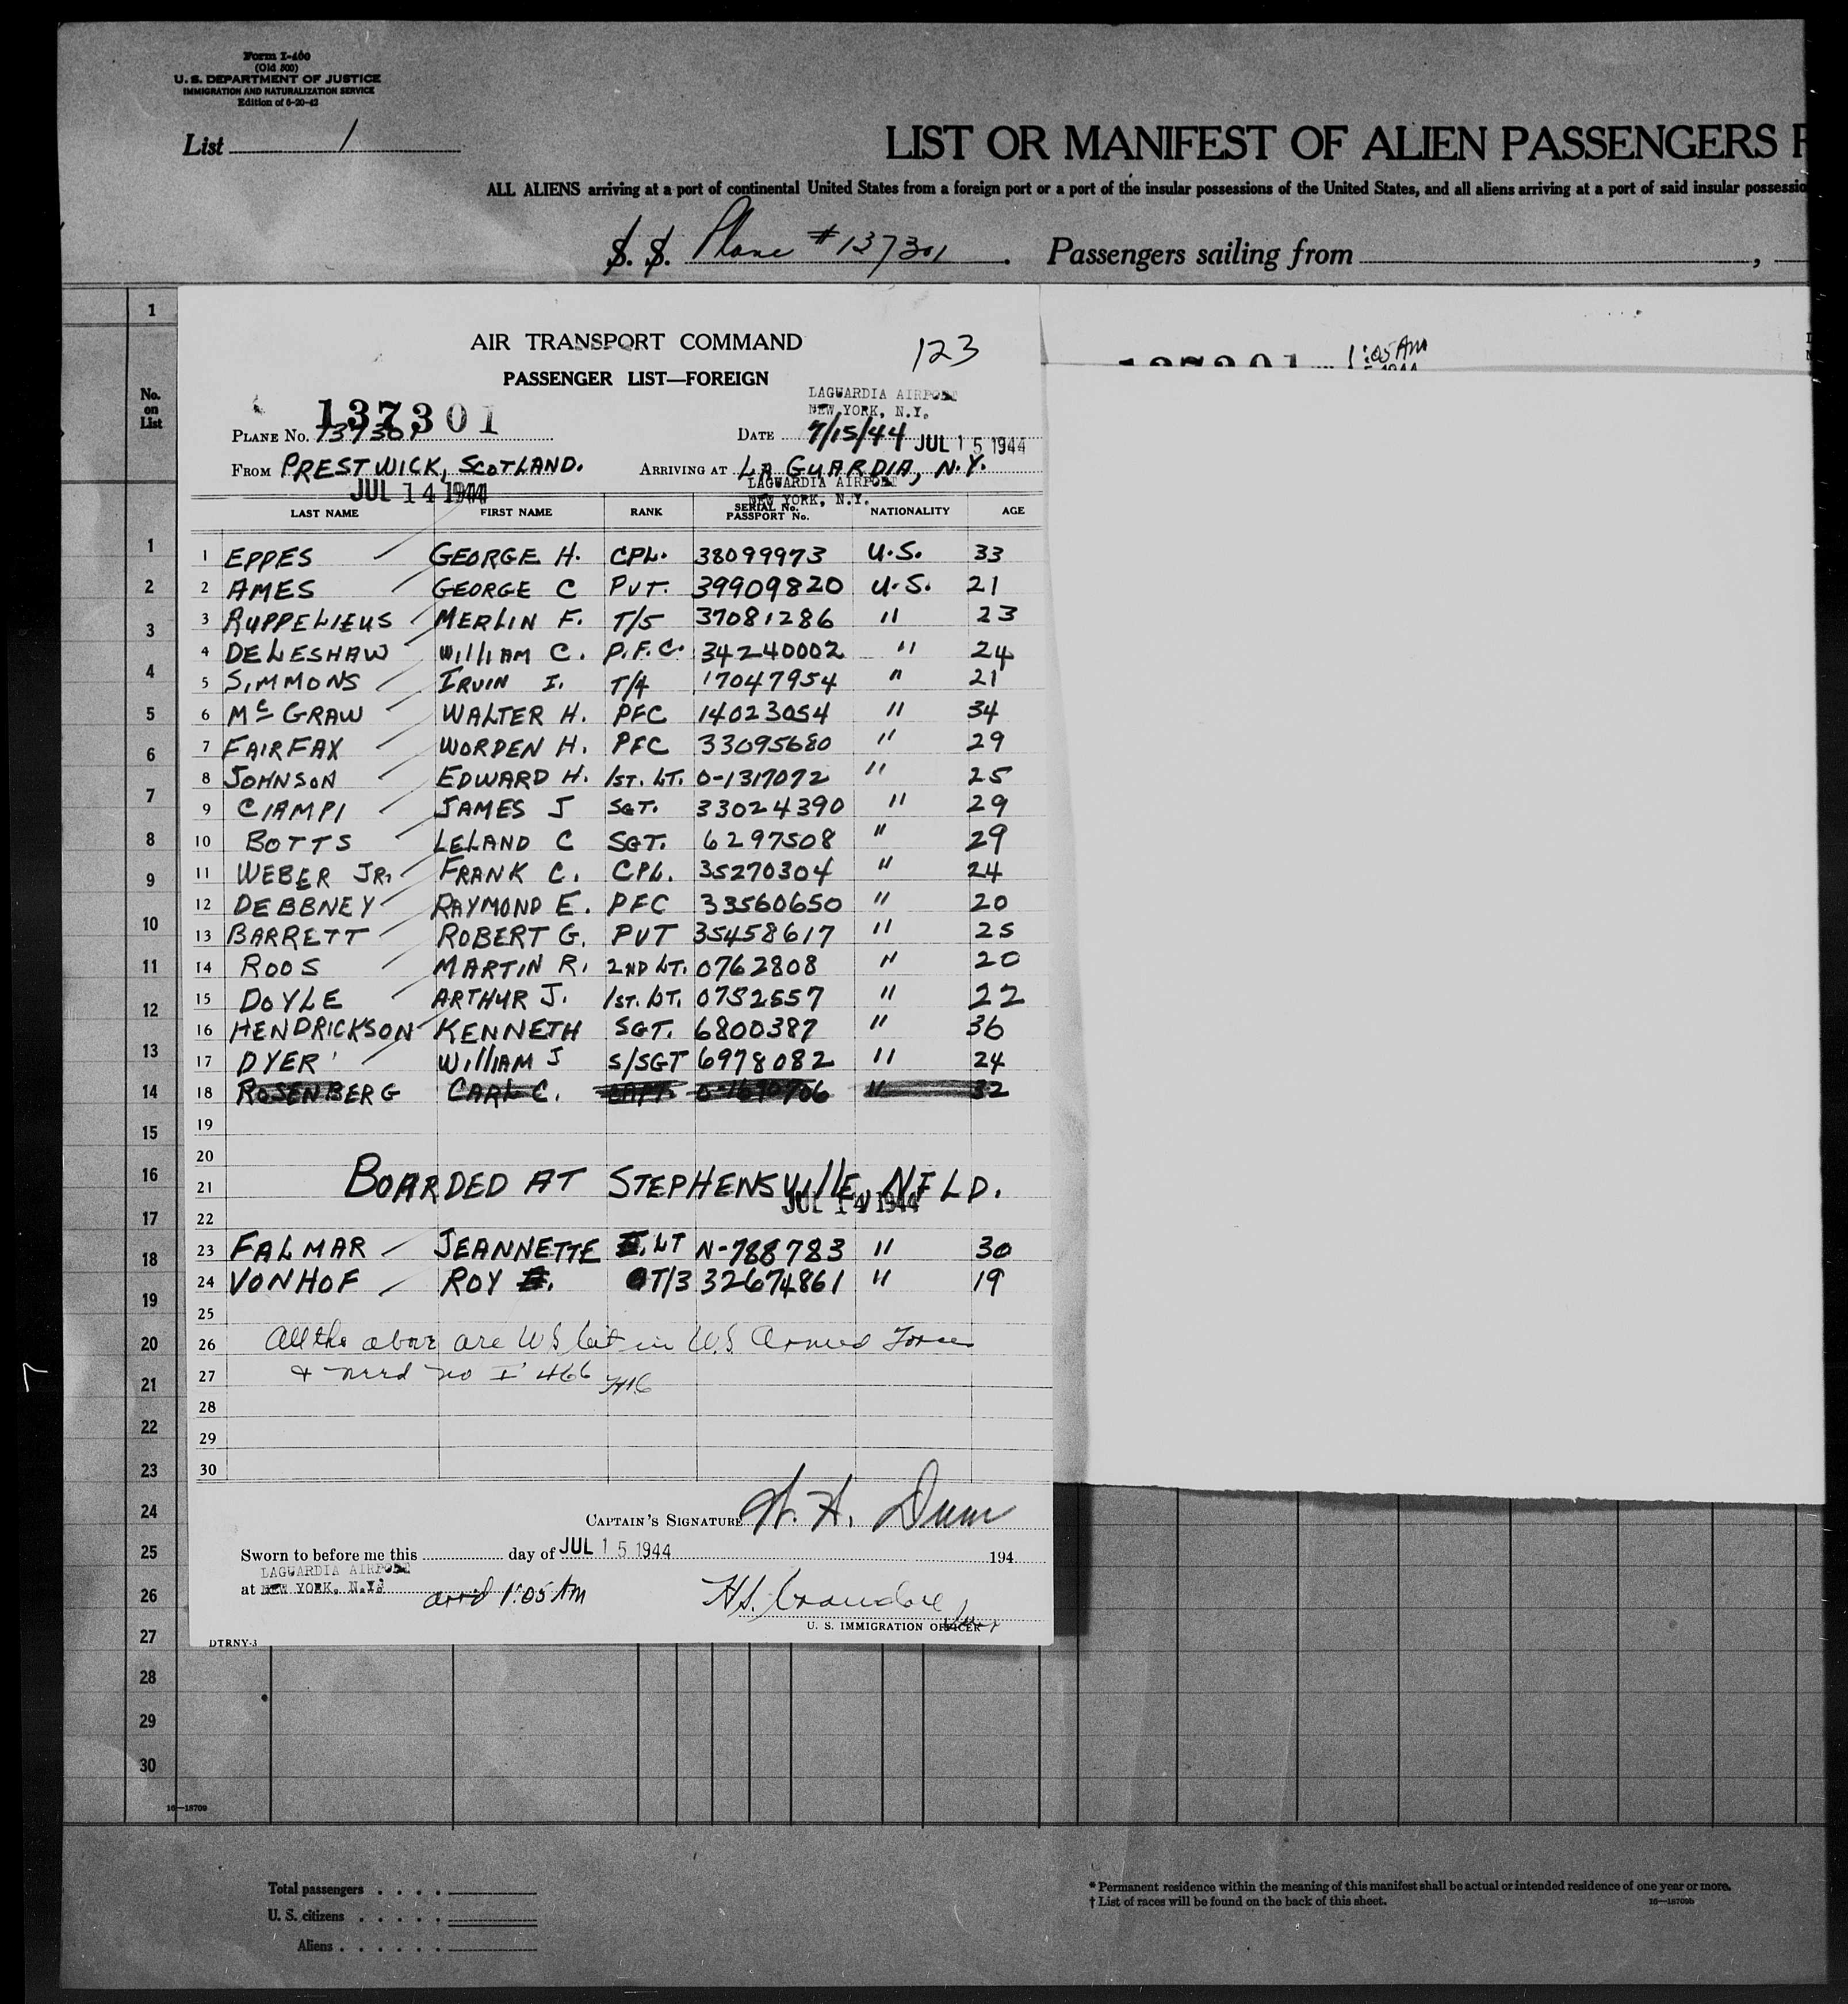 Form I-460
(Old 500)
U. S. DEPARTMENT OF JUSTICE
IMMIGRATION AND NATURALIZATION SERVICE
Edition of 6-20-42
List 1
LIST OR MANIFEST OF ALIEN PASSENGERS F
ALL ALIENS arriving at a port of continental United States from a foreign port or a port of the insular possessions of the United States, and all aliens arriving at a port of said insular possessio
S. S. Plane #137301 . Passengers sailing from ,
AIR TRANSPORT COMMAND
123
1:05 AM
137301
PASSENGER LIST—FOREIGN
LAGUARDIA AIRPORT
NEW YORK, N.Y.
137301
PLANE NO. 137301 DATE 7/15/44 JUL 15 1944
FROM PRESTWICK, SCOTLAND. ARRIVING AT LA GUARDIA, N.Y.
JUL 14 1944
LAGUARDIA AIRPORT
NEW YORK, N.Y.
No. on List
LAST NAME FIRST NAME RANK SERIAL No. PASSPORT No. NATIONALITY AGE
1 EPPES GEORGE H. CPL. 38099973 U.S. 33
2 AMES GEORGE C PVT. 39909820 U.S. 21
3 RUPPELIEUS MERLIN F. T/5 37081286 " 23
4 DELESHAW WILLIAM C. P.F.C. 34240002 " 24
5 SIMMONS IRVIN I. T/4 17047954 " 21
6 Mc GRAW WALTER H. PFC 14023054 " 34
7 FAIRFAX WORDEN H. PFC 33095680 " 29
8 JOHNSON EDWARD H. 1ST. LT. O-1317072 " 25
9 CIAMPI JAMES J SGT. 33024390 " 29
10 BOTTS LELAND C SGT. 6297508 " 29
11 WEBER JR. FRANK C. CPL. 35270304 " 24
12 DEBBNEY RAYMOND E. PFC 33560650 " 20
13 BARRETT ROBERT G. PVT 35458617 " 25
14 ROOS MARTIN R. 2ND LT. 0762808 " 20
15 DOYLE ARTHUR J. 1ST. LT. 0752557 " 22
16 HENDRICKSON KENNETH SGT. 6800387 " 36
17 DYER WILLIAM J S/SGT 6978082 " 24
18 ROSENBERG CARL C. CAPT. " 32
19
20
21 BOARDED AT STEPHENSVILLE, NFLD.
JUL 14 1944
22
23 FALMAR JEANNETTE LT N-788783 " 30
24 VONHOF ROY T/3 32674861 " 19
25
26 All the above are US cit in U.S Armed Forces
27 & need no I 466
28
29
30
CAPTAIN'S SIGNATURE
Sworn to before me this day of JUL 15 1944 194
LAGUARDIA AIRPORT
at NEW YORK, N.Y.
arr'd 1:05 AM
U. S. IMMIGRATION OFFICER
DTRNY-3
1
1
2
3
4
5
6
7
8
9
10
11
12
13
14
15
16
17
18
19
20
21
22
23
24
25
26
27
28
29
30
16—18709
Total passengers . . . .
U. S. citizens . . . . .
Aliens . . . . . .
* Permanent residence within the meaning of this manifest shall be actual or intended residence of one year or more.
† List of races will be found on the back of this sheet. 16—18709b
7